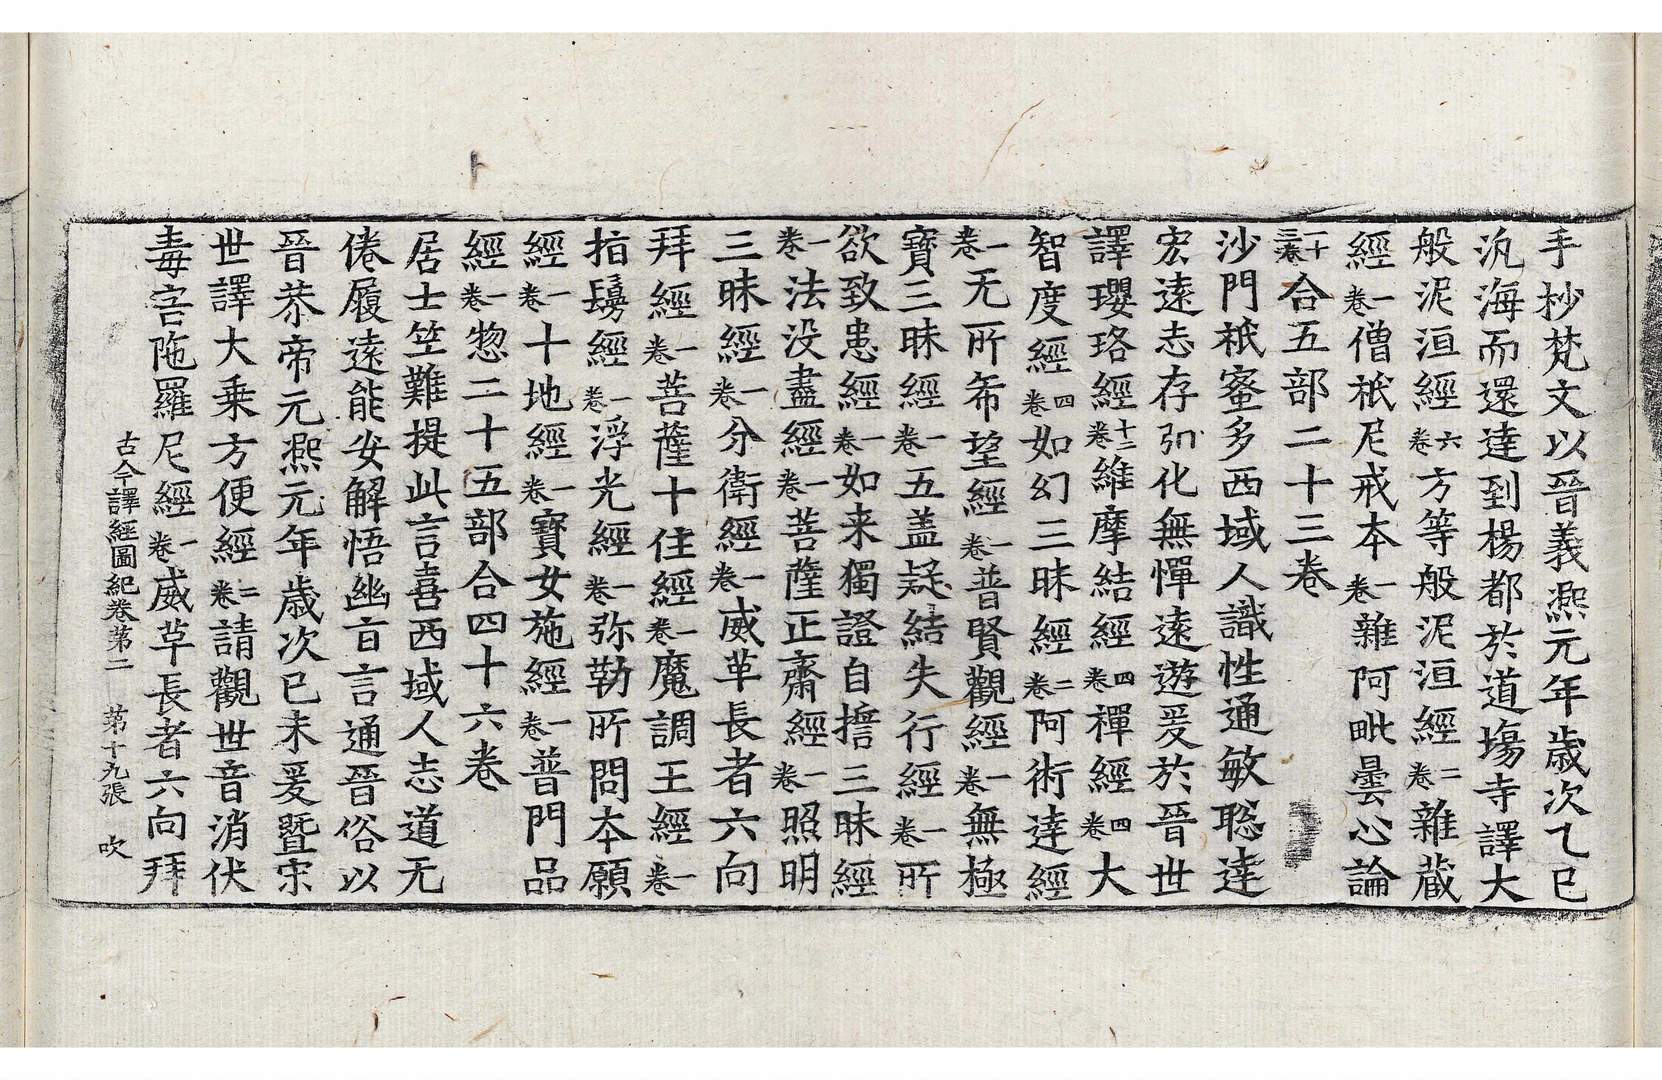 手抄梵文以晉義熙元年歲次乙巳
汎海而還達到楊都於道場寺譯大
般泥洹經六卷方等般泥洹經二卷雜藏
經一卷僧祇尼戒本一卷雜阿毗曇心論
十三卷合五部二十三卷
沙門祇蜜多西域人識性通敏聡達
宏遠志存弘化無憚遠遊爰於晉世
譯瓔珞經十二卷維摩結經四卷禪經四卷大
智度經四卷如幻三昧經二卷阿術達經
一卷无所希望經一卷普賢觀經一卷無極
寶三昧經一卷五盖疑結失行經一卷所
欲致患經一卷如来獨證自誓三昧經
一卷法没盡經一卷菩薩正齋經一卷照明
三昧經一卷分衛經一卷威革長者六向
拜經一卷菩薩十住經一卷魔調王經一卷
指鬘經一卷浮光經一卷弥勒所問本願
經一卷十地經一卷寶女施經一卷普門品
經一卷惣二十五部合四十六卷
居士竺難提此言喜西域人志道无
倦履遠能安解悟幽旨言通晉俗以
晉恭帝元熙元年歲次己未爰暨宋
世譯大乗方便經二卷請觀世音消伏
毒害陁羅尼經一卷威革長者六向拜
古今譯經圖紀卷第二 第十九張 吹